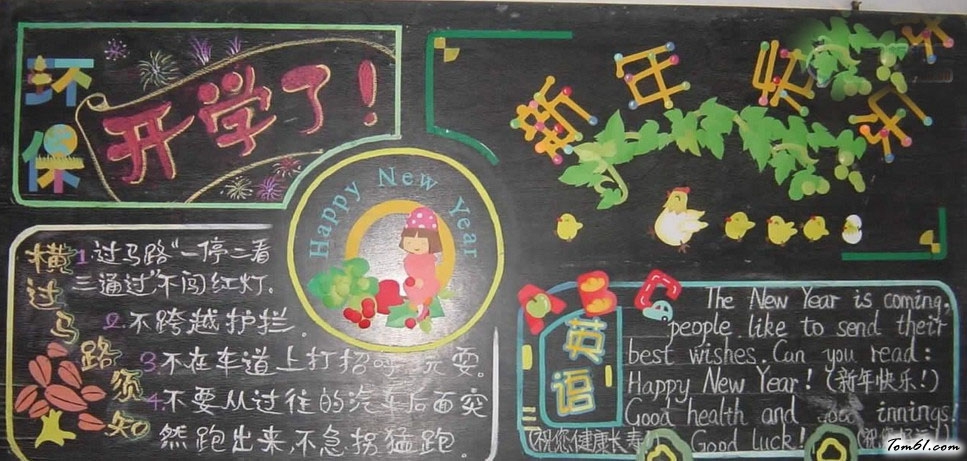 环保
开学了!
新年
Happy New Year
横过马路须知
1.过马路“一停二看
三通过”不闯红灯。
2.不跨越护拦.
3不在车道上打招呼玩耍。
4.不要从过往的汽车后面突
然跑出来,不急拐猛跑.
ABC
英语
The New Year is coming,
people like to send their
best wishes. Can you read:
Happy New Year! (新年快乐!)
Good health and innings!
(祝您健康长寿!) Good Luck!
Tom61.com